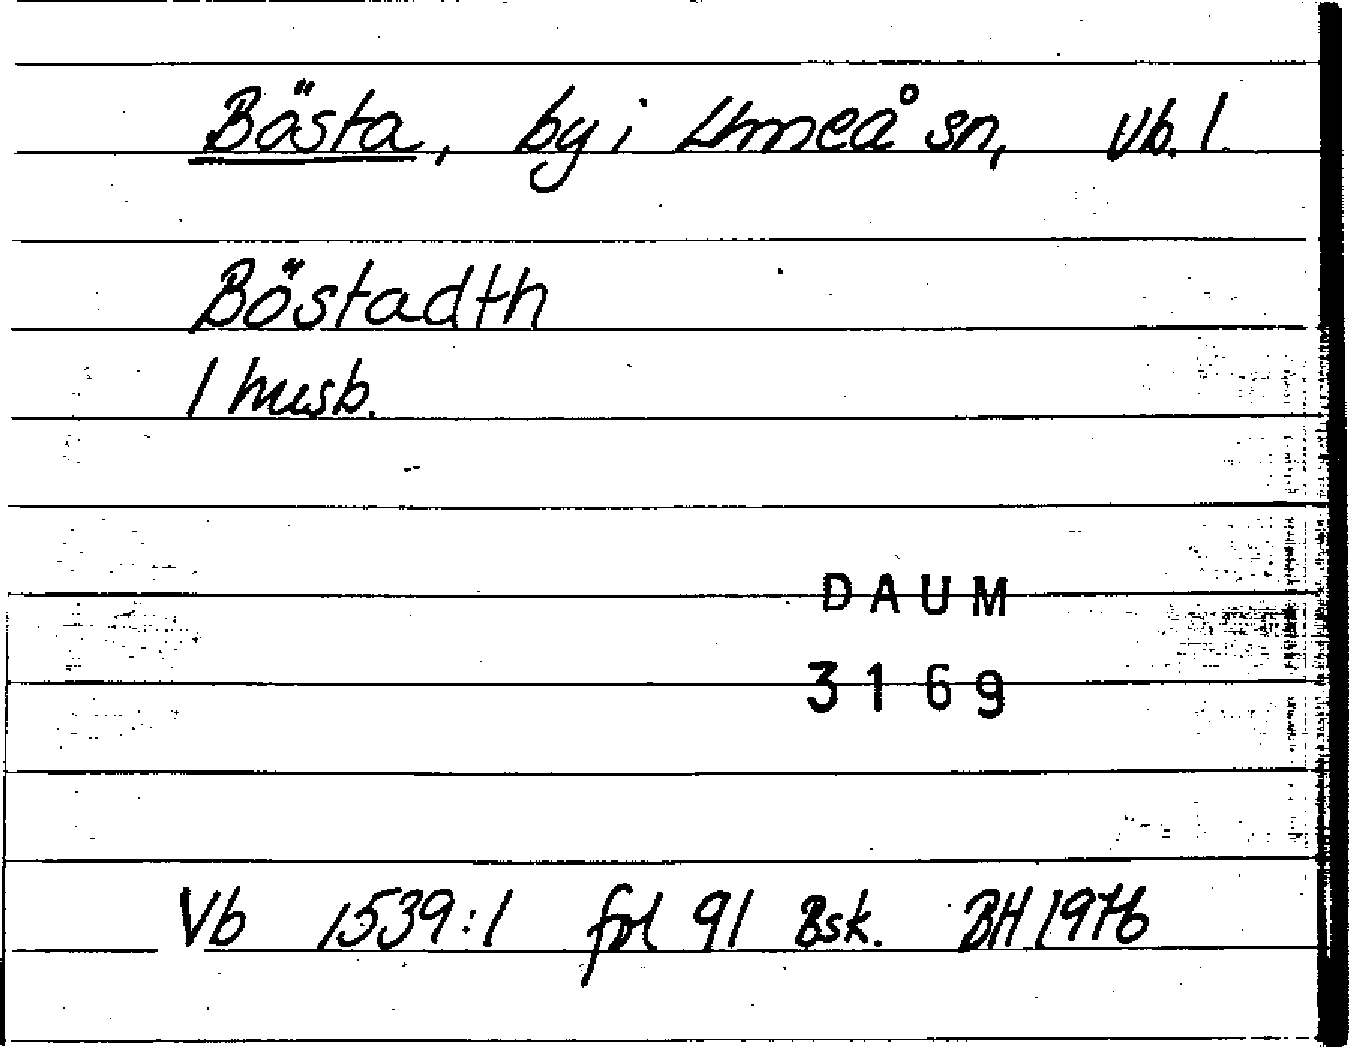 Bösta, by i Umeå sn, Vb. l.
Böstadth
1 husb.
DAUM
3169
Vb 1539:1 fol 91 Bsk. BH 1976